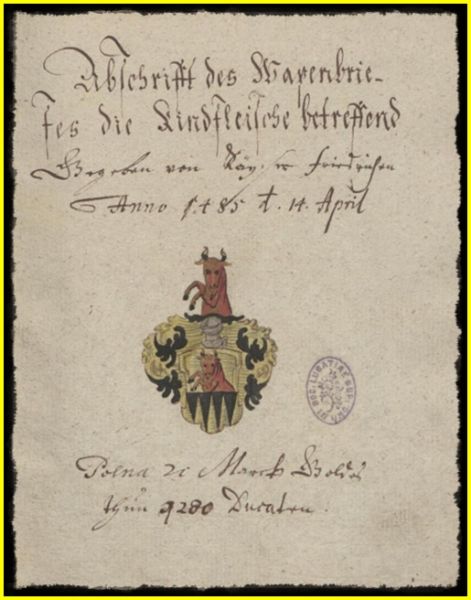 Abschrifft des Wapenbrie-
fes die Rindfleische betreffend
Gegeben von Käyser Friedrichen
Anno 1485 d. 14. April
Poena 21 Marck Goldes
thun 9280 Ducaten.